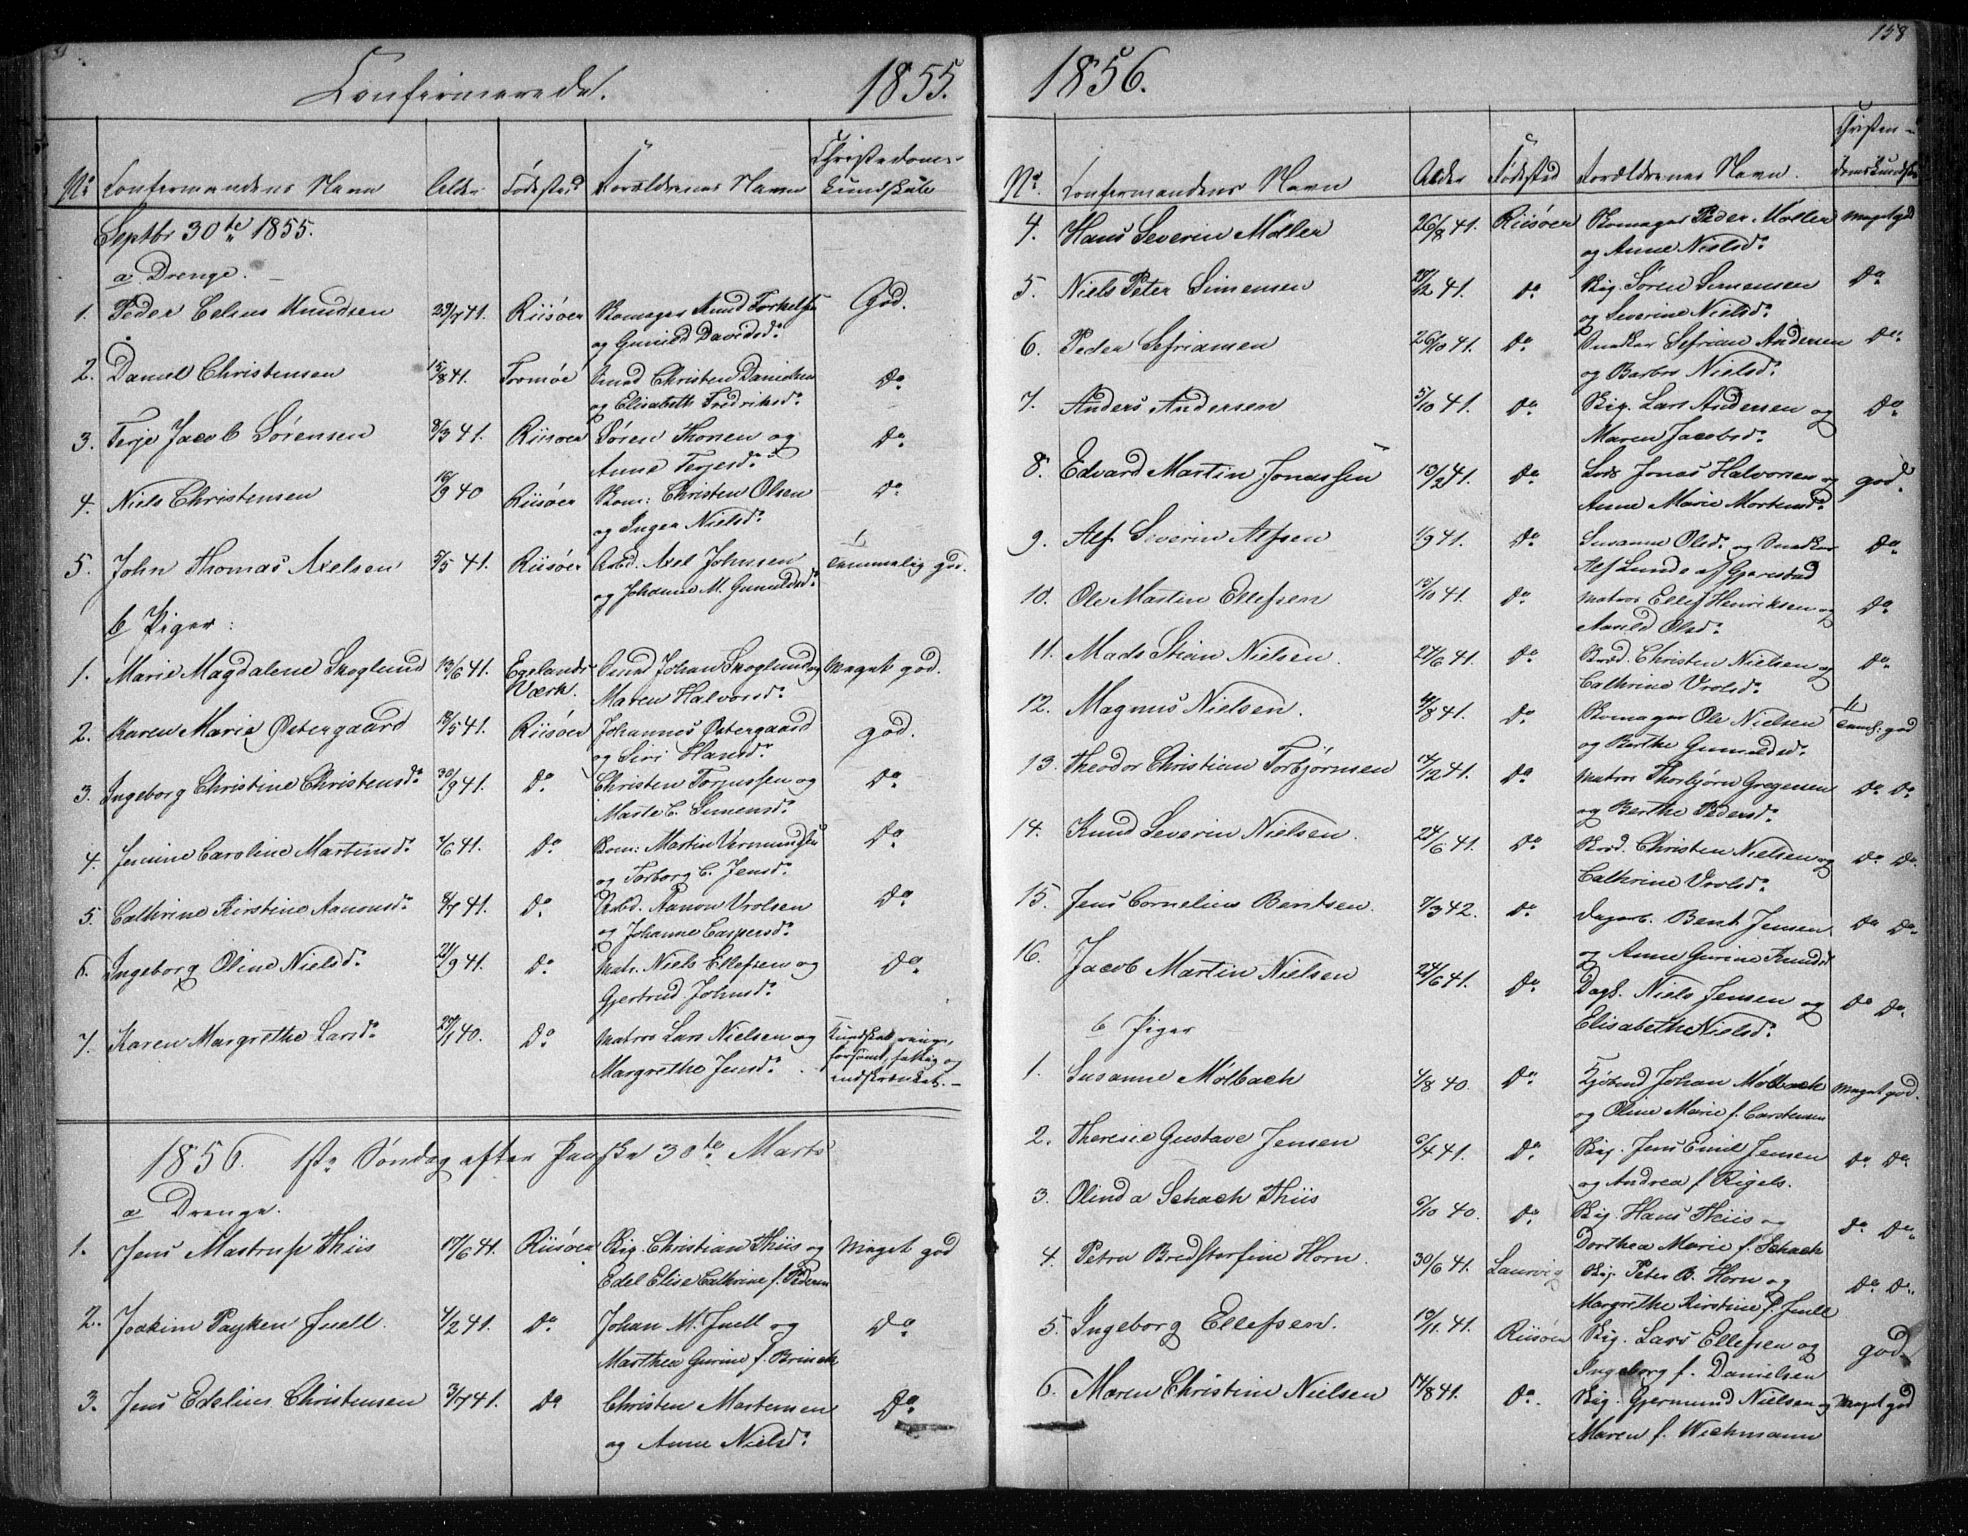 Confirmerede. 1855.
No Confirmandens Navn Alder Fødested Forældrenes Navn Christendoms-
kundskab
Septbr 30te 1855.
a Drenge.
1. Peder Knudsen 29/7 41. Riisøer Skomager Knud Torkelsen God.
og Gunild Davidsd.
2. Daniel Christensen 15/8 41. Tromøe Smed Christen Danielsen Do
og Elisabeth Fredriksd.
3. Terje Jacob Sørensen 8/3 41. Riisøer Søren Thorsen og Do
Anne Terjesd.
4. Niels Christensen 19 40 Riisøer Skom: Christen Olsen Do
og Inger Nielsd.
5. John Thomas Axelsen 5/5 41. Riisøer Arbd. Axel Johnsen temmelig god.
og Johanne M. Gunuldsd.
b Piger:
1. Marie Magdalene Skoglund 13/6 41. Egelands Smed Johan Skoglund og Meget god.
Værk. Maren Halvorsd.
2. Karen Marie Østergaard 18/5 41. Riisøer Johannes Østergaard god.
og Siri Hansd.
3. Ingeborg Christine Christensd. 30/9 41. Do Christen Torjussen og Do
Marte C. Simensd.
4. Jensine Caroline Martinsd. 4/6 41. Do Skom: Martin Vermundsen Do
og Torborg C. Jensd.
5. Cathrine Kirstine Aanonsd. 8/7 41. Do Arbd. Aanon Vrolsen Do
og Johanne Caspersd.
6. Ingeborg Oline Nielsd. 21/9 41. Do Matr. Niels Ellefsen og Do
Gjertrud Johnsd.
7. Karen Margrethe Larsd. 29/1 40. Do Matros Lars Nielsen og Kundskab ringe,
Margrethe Jensd. forsømt, fattig og
indskrænket. -
1856. 1ste Søndag efter Paaske 30te Marts
a Drenge.
1. Jens Mastrup Thiis 17/6 41. Riisøer Skip. Christian Thiis og Meget god
Edel Elise Cathrine f. Pedersen
2. Joakim Payken Juell. 4/2 41. Do Johan M. Juell og Do
Marthea Gurine f. Brinch
3. Jens Edelius Christensen 3/7 41. Do Christen Mortensen Do
og Anne Nielsd.
1856. 158
No Confirmandens Navn Alder Fødested Forældrenes Navn. Christen-
domskundskab
4. Hans Severin Møller 26/8 41. Riisøer Skomager Peder Møller Meget god
og Anne Nielsd.
5. Niels Peter Simensen 28/2 41. Do Skip. Søren Simensen Do
og Severine Nielsd.
6. Peder Sefriansen 26/10 41. Do Snedker Sefrian Andersen Do
og Barbro Nielsd.
7. Anders Andersen 5/10 41. Do Skip. Lars Andersen og Do
Maren Jacobsd.
8. Edvard Martin Jonassen 13/2 41. Do Lods Jonas Halvorsen og god.
Anne Marie Mortensd.
9. Alf Severin Alfsen 1/9 41. Do Susanne Olsd. og Snedker Do
Alf Lunde af Gjerestad
10. Ole Martin Ellefsen 15/10 41. Do Matros Ellef Henriksen og Do
Aasild Olsd.
11. Mads Stian Nielsen. 27/6 41. Do Christen Nielsen og Do
Cathrine Vrolsd.
12. Magnus Nielsen. 4/8 41. Do Skomager Ole Nielsen Teml: god
og Berthe Gunuldsd.
13. Theodor Christian Torbjørnsen 17/12 41. Do Matros Thorbjørn Gregersen Do Do
og Berthe Pedersd.
14. Knud Severin Nielsen. 24/6 41. Do Christen Nielsen og Do Do
Cathrine Vrolsd.
15. Jens Cornelius Bentsen. 7/3 42. Do Dagarb. Bent Jensen Do Do
og Anne Gurine Knudsd
16. Jacob Martin Nielsen 24/6 41. Do Dagl. Niels Jensen og Do Do
Elisabethe Nielsd.
b Piger
1. Susanne Mølbach 4/8 40. Do Kjøbmd Johan Mølbach Meget god.
og Oline Marie f. Carstensen
2. Theresie Gustave Jensen 6/4 41. Do Skip. Jens Emil Jensen Do Do
og Andrea f Rigels.
3. Olinda Schach Thiis 6/10 40. Do Skip. Hans Thiis og Do Do
Dorthea Marie f. Schach
4. Petra Bredstorfine Horn. 30/6 41. Laurvig Skip. Peter B. Horn og Do Do
Margrethe Kirstine f. Juell
5. Ingeborg Ellefsen. 19/11 41. Riisøer Skip. Lars Ellefsen og god
Ingeborg f. Danielsen
6. Maren Christine Nielsen 17/8 41. Do Skip. Gjermund Nielsen og Meget god
Maren f. Wichmann